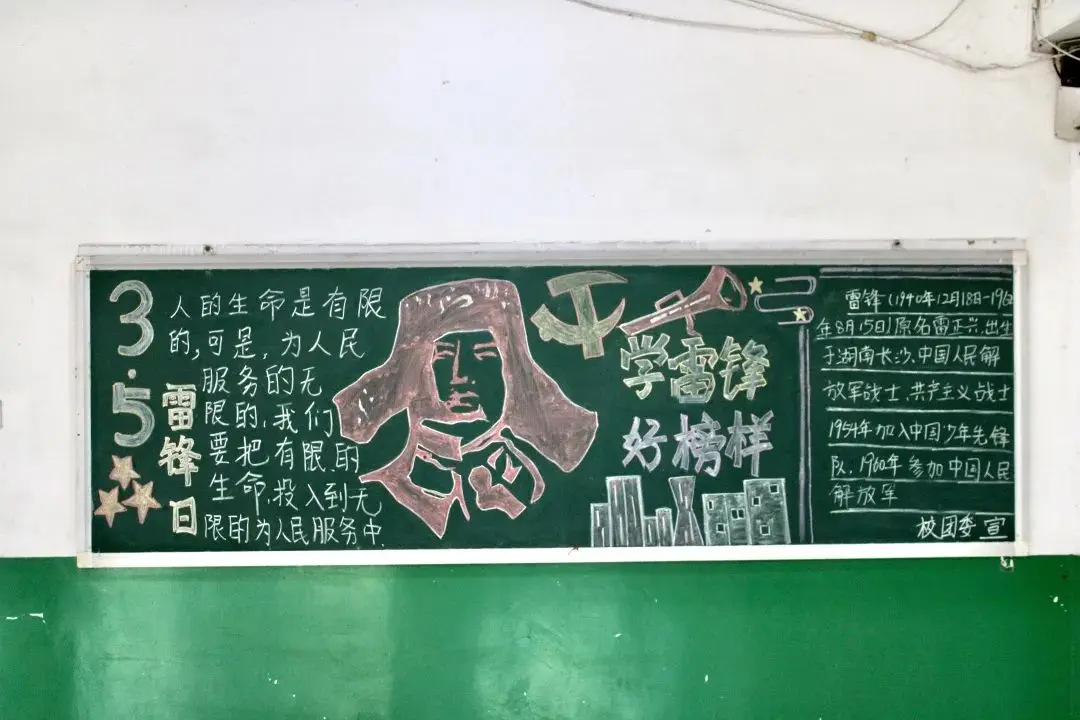 3.5
雷锋日
人的生命是有限
的,可是,为人民
服务的无
限的,我们
要把有限的
生命,投入到无
限的为人民服务中
学雷锋
好榜样
雷锋(1940年12月18日-1962
年8月15日)原名雷正兴,出生
于湖南长沙,中国人民解
放军战士,共产主义战士
1954年加入中国少年先锋
队,1960年参加中国人民
解放军
校团委 宣